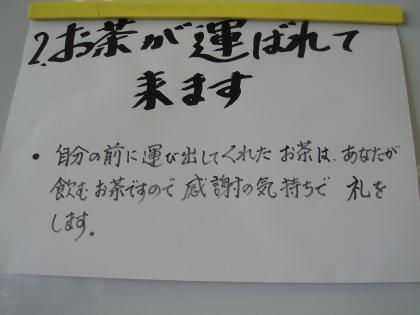 2.お茶が運ばれて
来ます
• 自分の前に運び出してくれたお茶は、あなたが
飲むお茶ですので感謝の気持ちで 礼を
します。